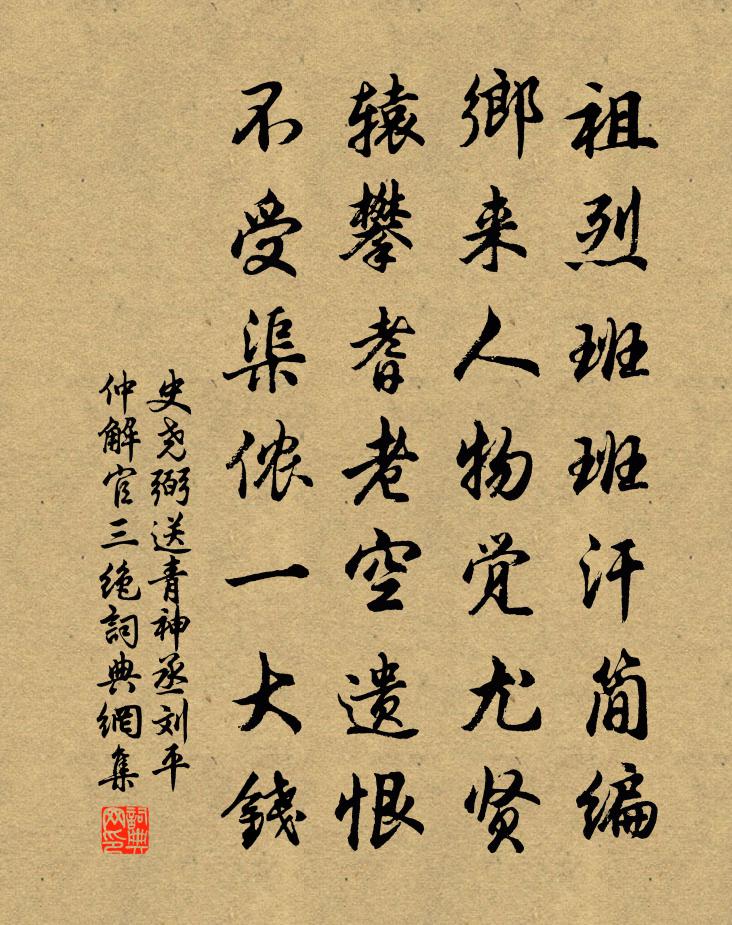 祖烈班班汗简编
鄉来人物觉尤贤
辕攀耆老空遗恨
不受渠侬一大錢
史尧弼送青神丞刘平
仲解官三绝詞典網集
詞典
网印